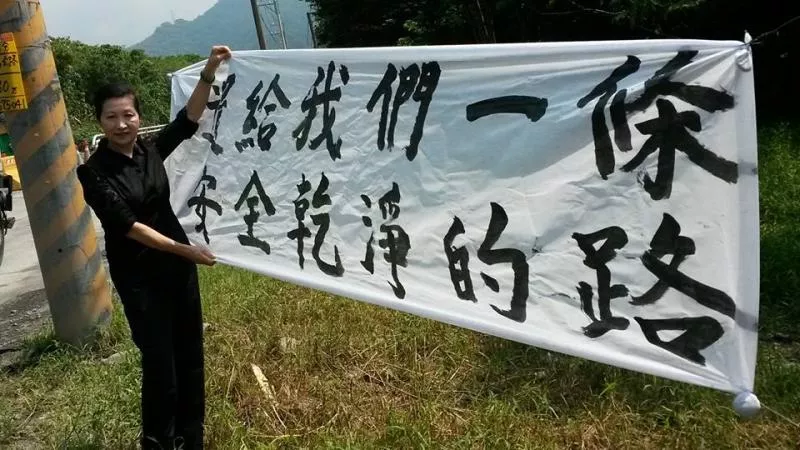 給我們一條
安全乾淨的路